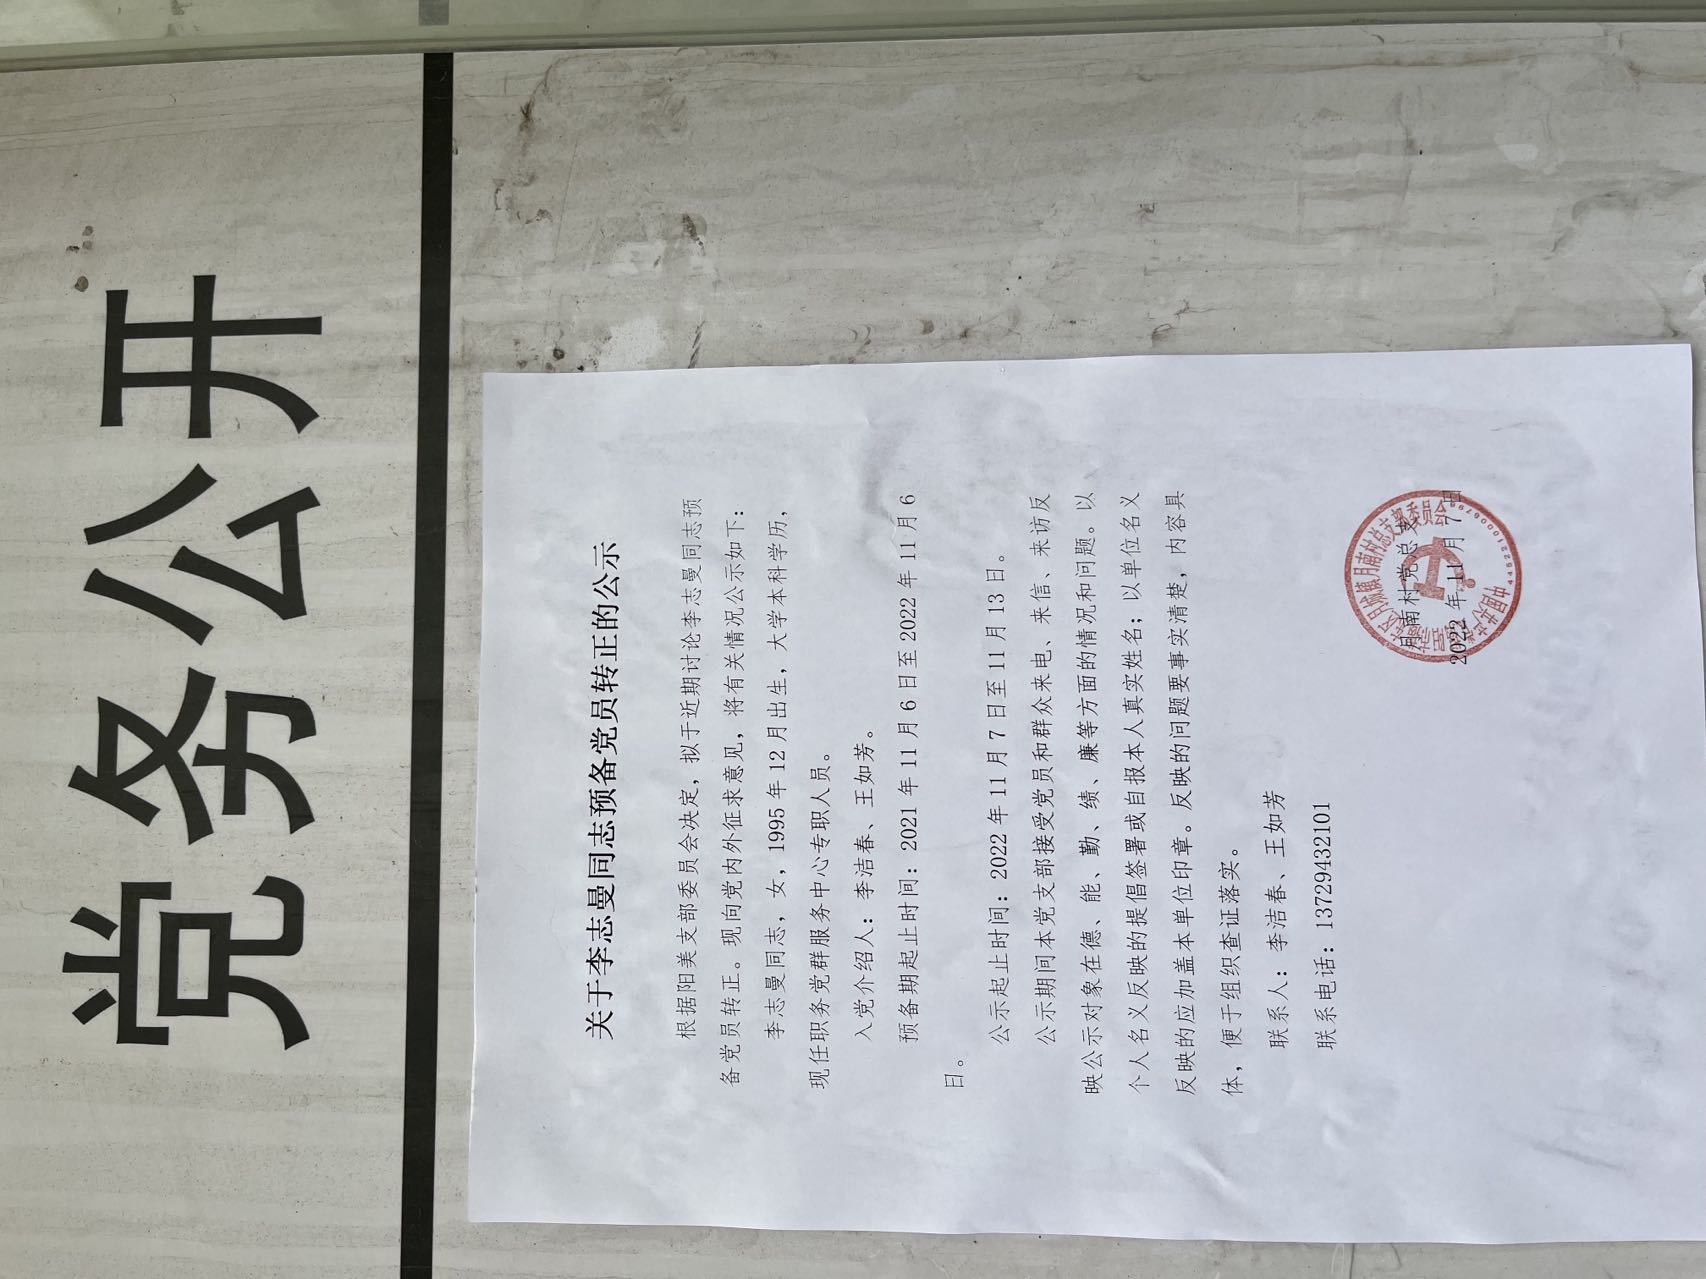 党务公开
关于李志曼同志预备党员转正的公示
根据阳美支部委员会决定，拟于近期讨论李志曼同志预
备党员转正。现向党内外征求意见，将有关情况公示如下：
李志曼同志，女，1995年12月出生，大学本科学历，
现任职务党群服务中心专职人员。
入党介绍人：李洁春、王如芳。
预备期起止时间：2021年11月6日至2022年11月6
日。
公示起止时间：2022年11月7日至11月13日。
公示期间本党支部接受党员和群众来电、来信、来访反
映公示对象在德、能、勤、绩、廉等方面的情况和问题。以
个人名义反映的提倡签署或自报本人真实姓名；以单位名义
反映的应加盖本单位印章。反映的问题要事实清楚，内容具
体，便于组织查证落实。
联系人：李洁春、王如芳
联系电话：13729432101
月南村党总支
2022年11月7日